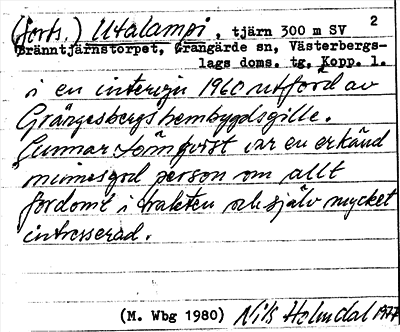 (forts.) Utalampi, tjärn 300 m SV 2
Bränntjärnstorpet, Grangärde sn, Västerbergs-
lags doms. tg, Kopp. l.
i en intervju 1960 utförd av
Grängesbergs hembygdsgille.
Gunnar Lönnqvist var en erkänd
minnesgod person om allt
fordomt i trakten och själv mycket
intresserad.
(M. Wbg 1980) Nils Holmdal 1977